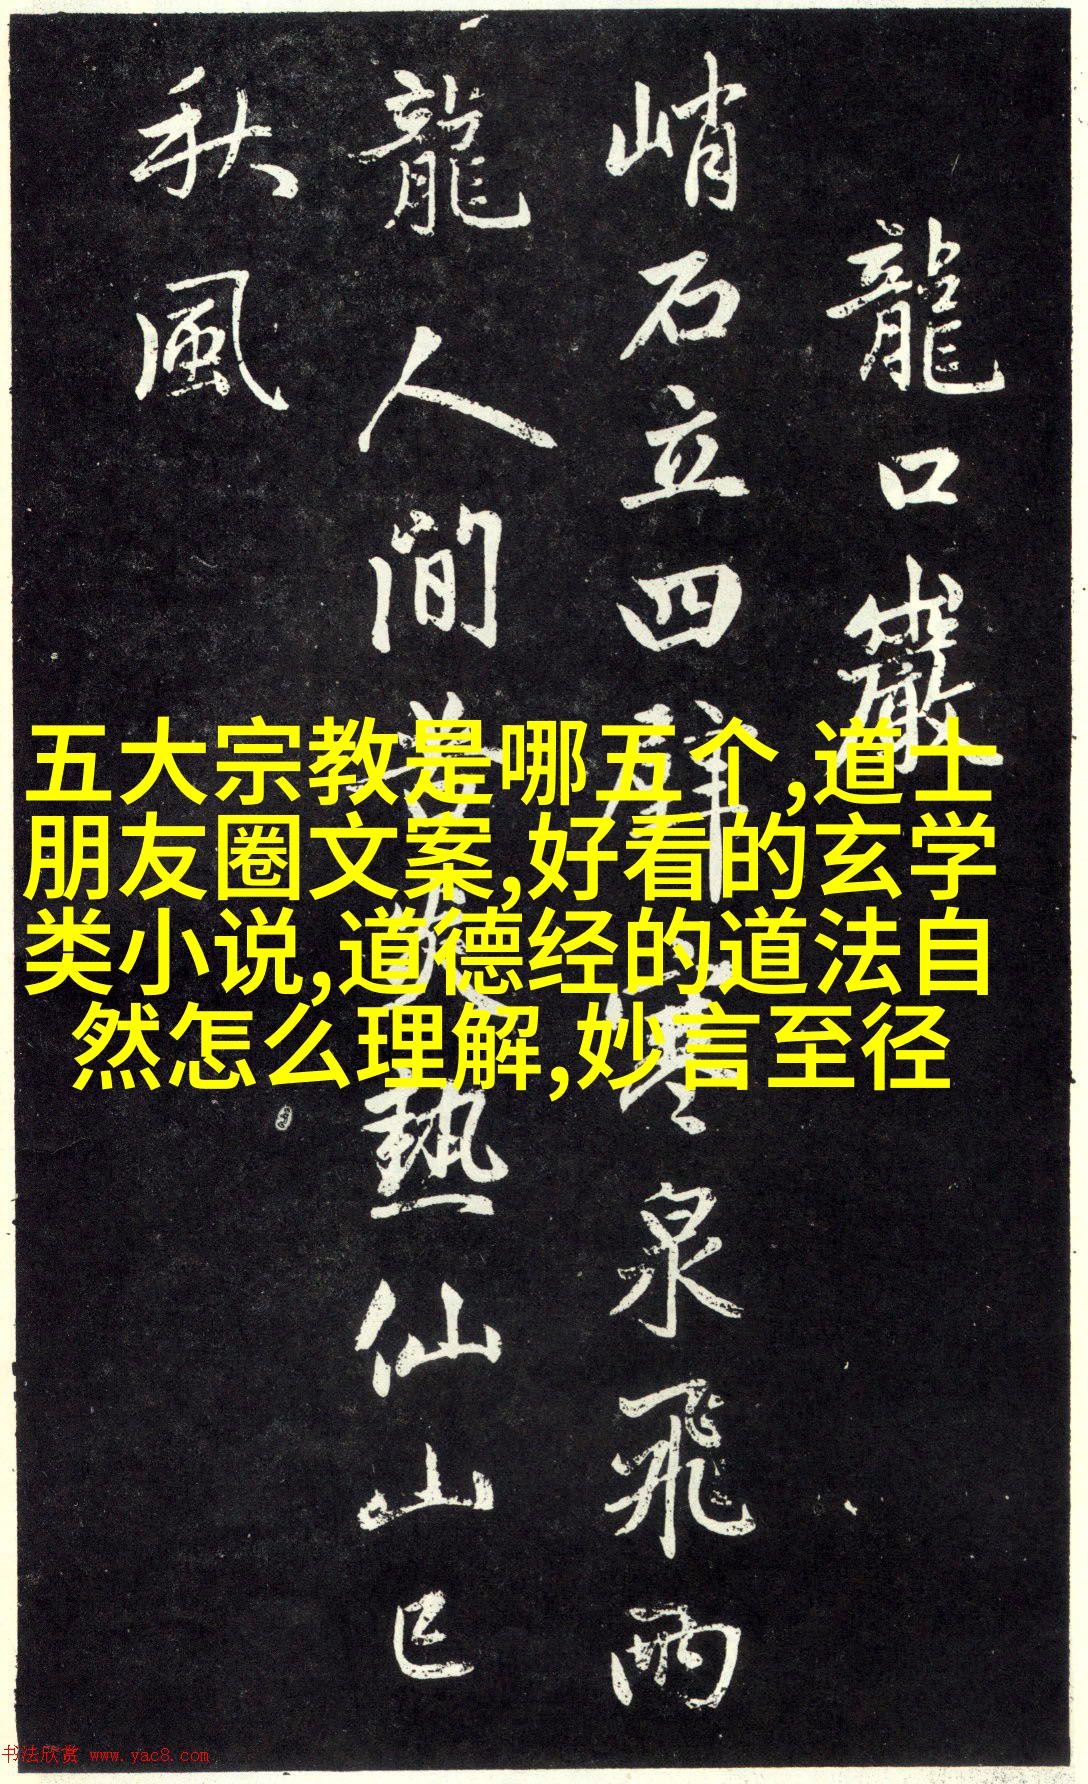 龍口巖
峭石立四壁寒泉飛兩
龍人間苦炎熱仙山已
秋風
五大宗教是哪五个,道士
朋友圈文案,好看的玄学
类小说,道德经的道法自
然怎么理解,妙言至径
书法欣赏 www.yac8.com